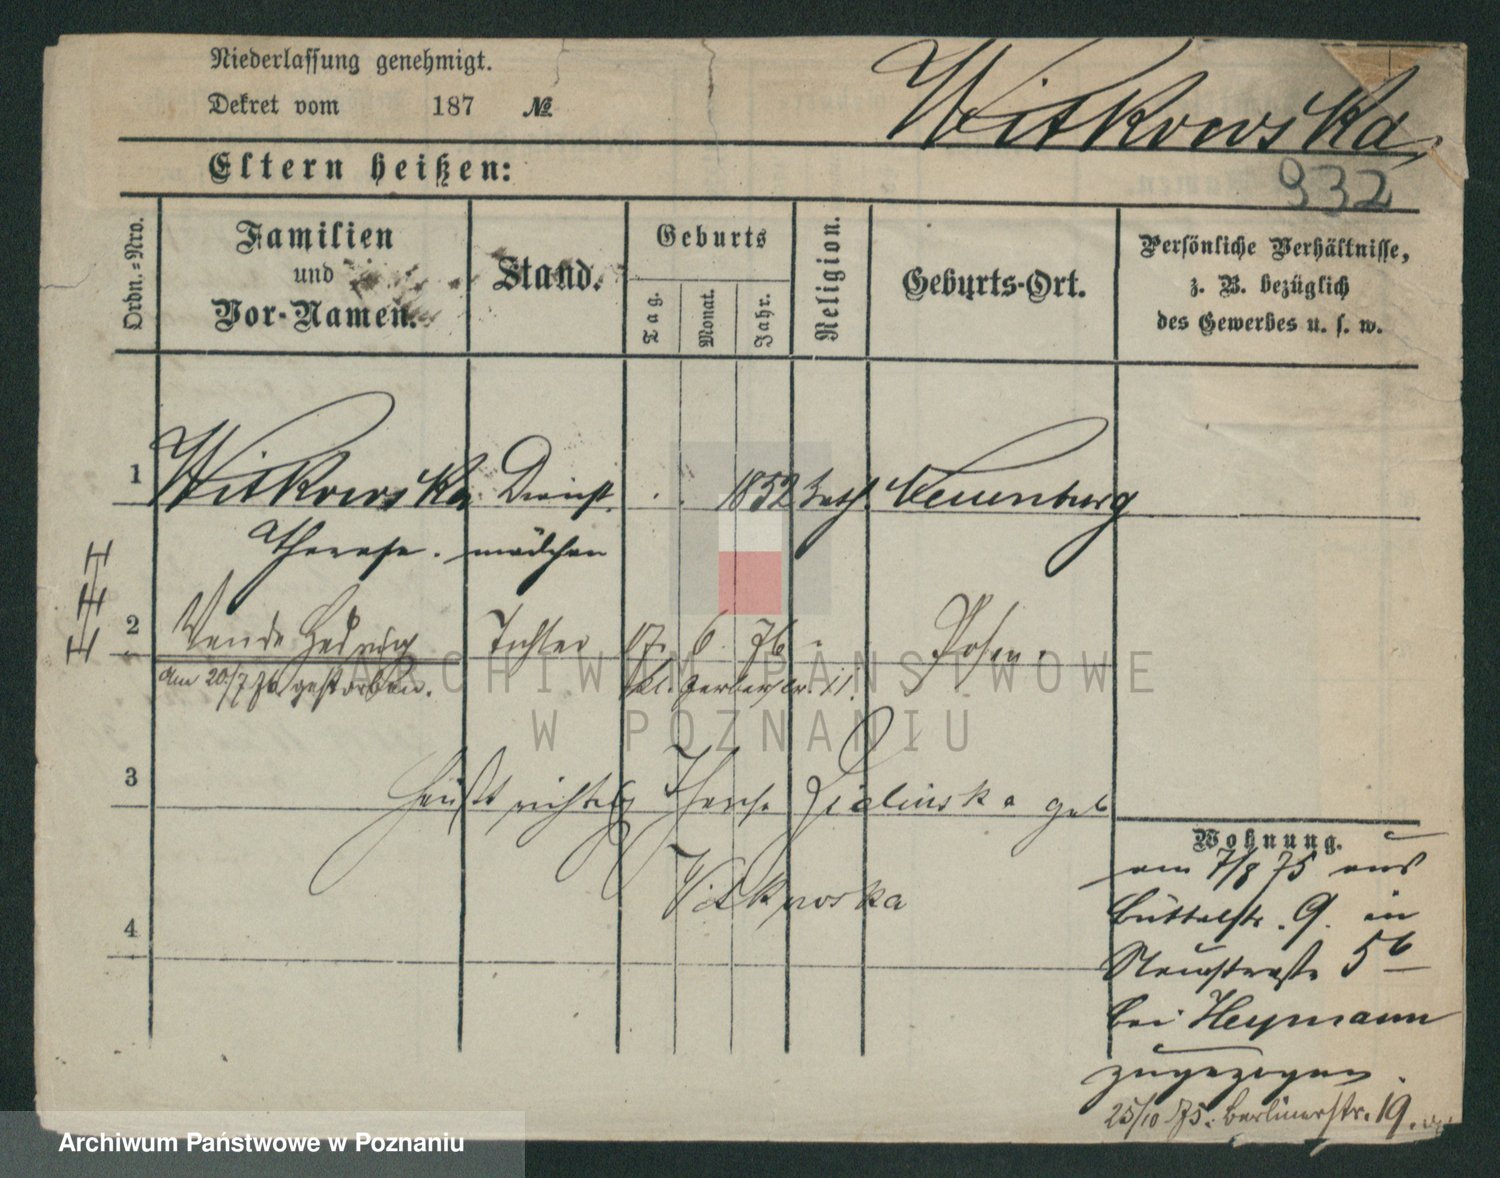 Niederlassung genehmigt.
Dekret vom 187 №
Witkowska
932
Eltern heißen:
Ordn.-Nro.
Familien
und
Vor-Namen.
Stand.
Geburts
Tag.
Monat.
Jahr.
Religion.
Geburts-Ort.
Persönliche Verhältnisse,
z. B. bezüglich
des Gewerbes u. s. w.
1 Witkowska Dienst 1852 kath. Neuenburg
Therese. mädchen
2 Wanda Hedwig Tochter 17. 6. 76 Posen.
am 20/7 76 gestorben. kl. Gerberstr. 11.
3 heißt richtig Therese Zielinska geb
Witkowska
4
Wohnung.
am 7/8 75 aus
Büttelstr. 9. in
Neuestraße 5b
bei Heymann
zugezogen.
25/10 75. Berlinerstr. 19.
ARCHIWUM PAŃSTWOWE
W POZNANIU
Archiwum Państwowe w Poznaniu